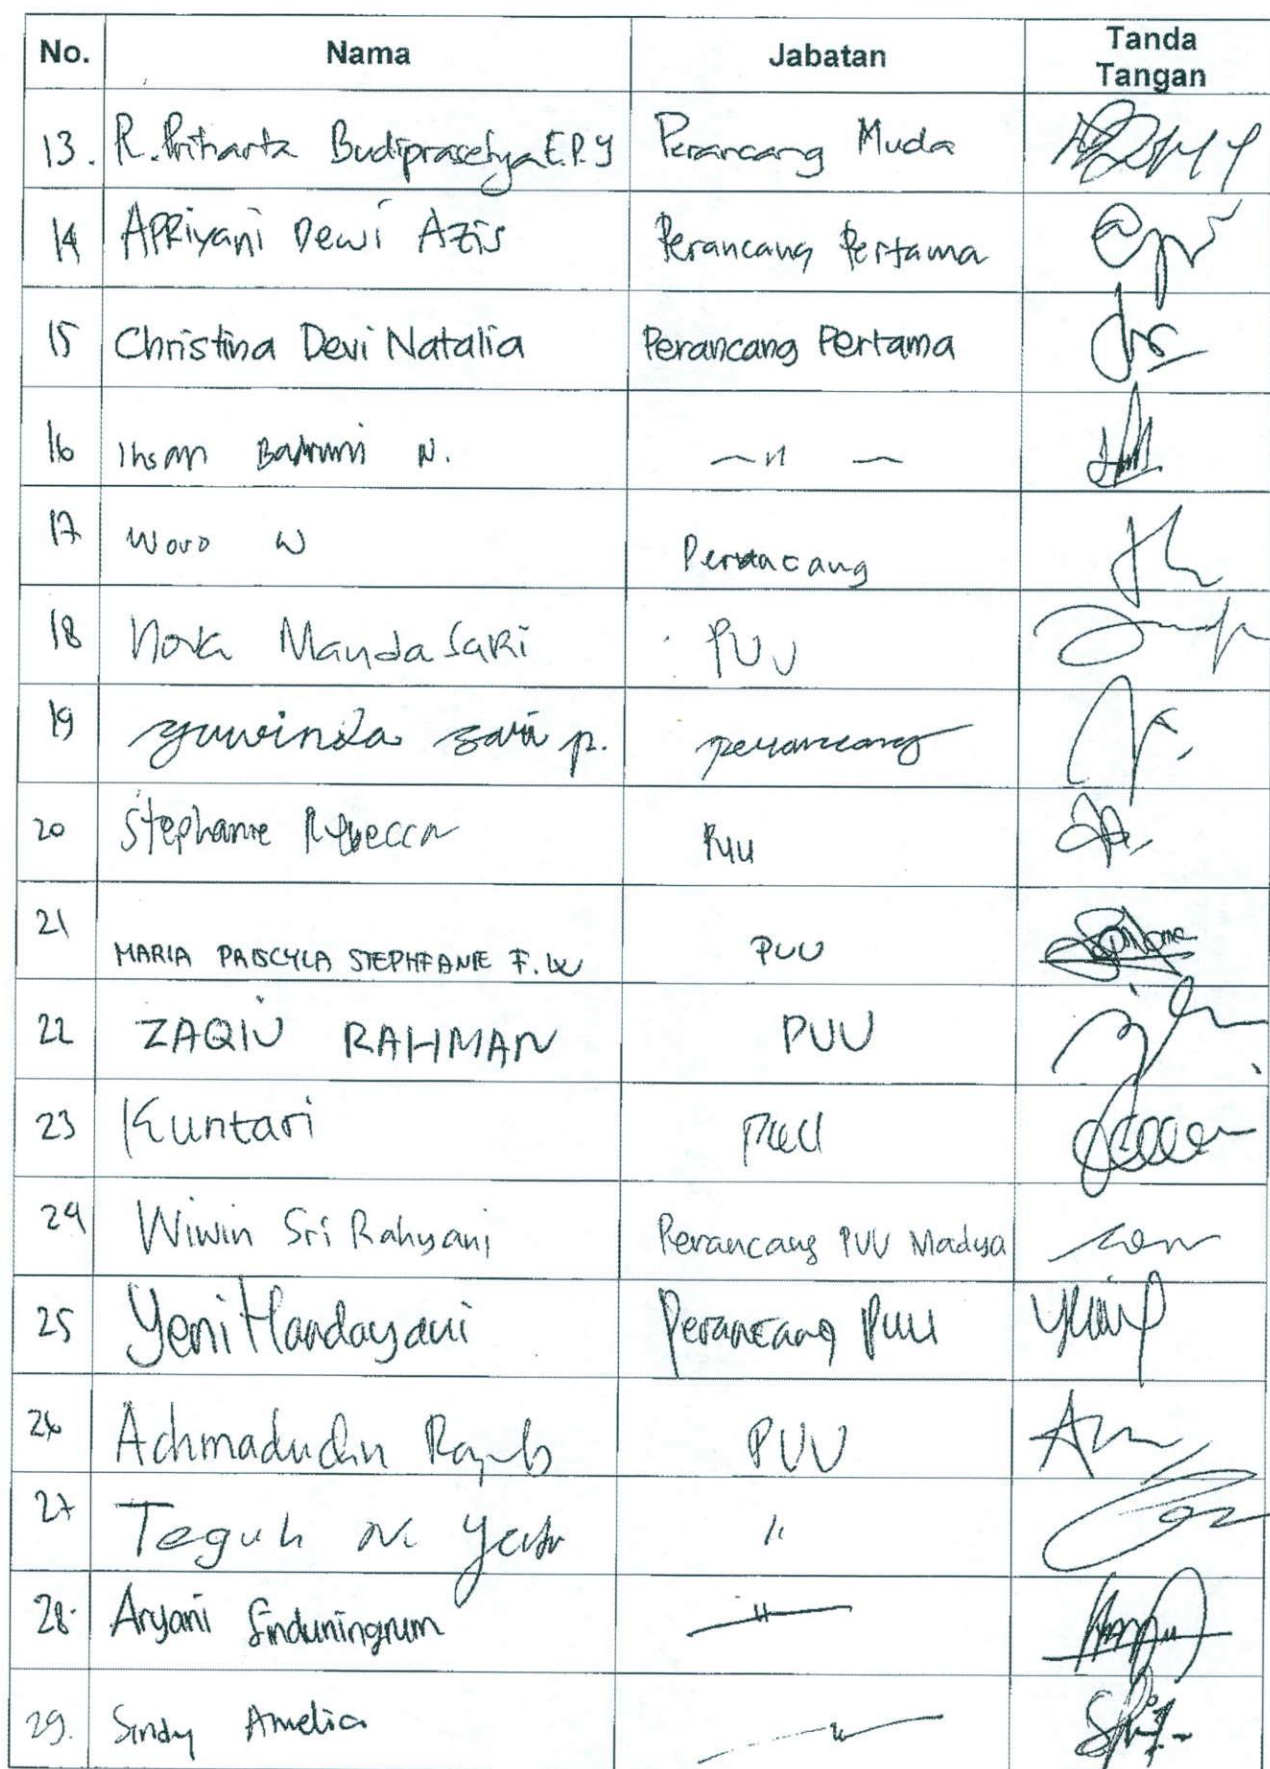 No. Nama Jabatan Tanda Tangan
13. R. Priharta Budiprasetya E.P.Y Perancang Muda
14 APRiyani Dewi Azis Perancang Pertama
15 Christina Devi Natalia Perancang Pertama
16 Ihsan N. — 〃 —
17 Woro W Perancang
18 Nova Manda Sari PUU
19 yuwinda sari p. perancang
20 Stephanie Rebecca PUU
21 MARIA PRISCYLA STEPHFANIE F. W PUU
22 ZAQIU RAHMAN PUU
23 Kuntari PUU
24 Wiwin Sri Rahyani Perancang PUU Madya
25 Yeni Handayani Perancang PUU
26 Achmadudin PUU
27 Teguh 〃
28. Aryani Sinduningrum — 〃 —
29. Sindy Amelia — 〃 —